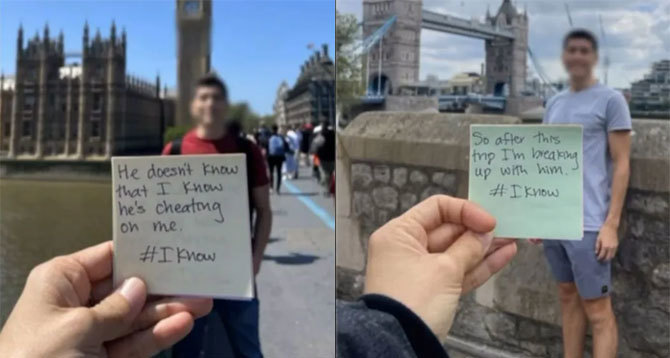 He doesn't know
that I know
he's cheating
on me.
#IKnow
So after this
trip I'm breaking
up with him.
#IKnow